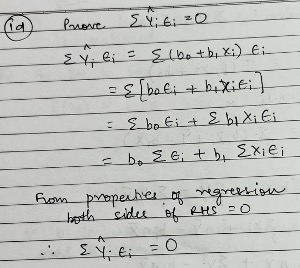 (1d) Prove Σ Ŷi ϵi = 0
Σ Ŷi ϵi = Σ (b0 + b1 Xi) ϵi
= Σ [b0 ϵi + b1 Xi ϵi]
= Σ b0 ϵi + Σ b1 Xi ϵi
= b0 Σ ϵi + b1 Σ Xi ϵi
From properties of regression
both sides of RHS = 0
∴ Σ Ŷi ϵi = 0